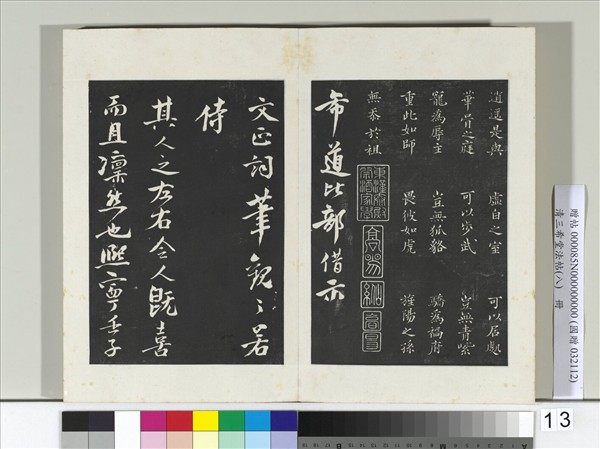 逍遥是與 虚白之室 可以居處
華胥之庭 可以步武 豈無青紫
寵為辱主 豈無狐貉 驕為禍府
重此如師 畏彼如虎 旌陽之孫
無忝於祖
希道比部借示
文正詞筆觀之若
侍
其人之左右令人既喜
而且凛然也熙寧壬子
贈帖 000085N000000000 (國贈 032112)
清三希堂法帖(八) 冊
13